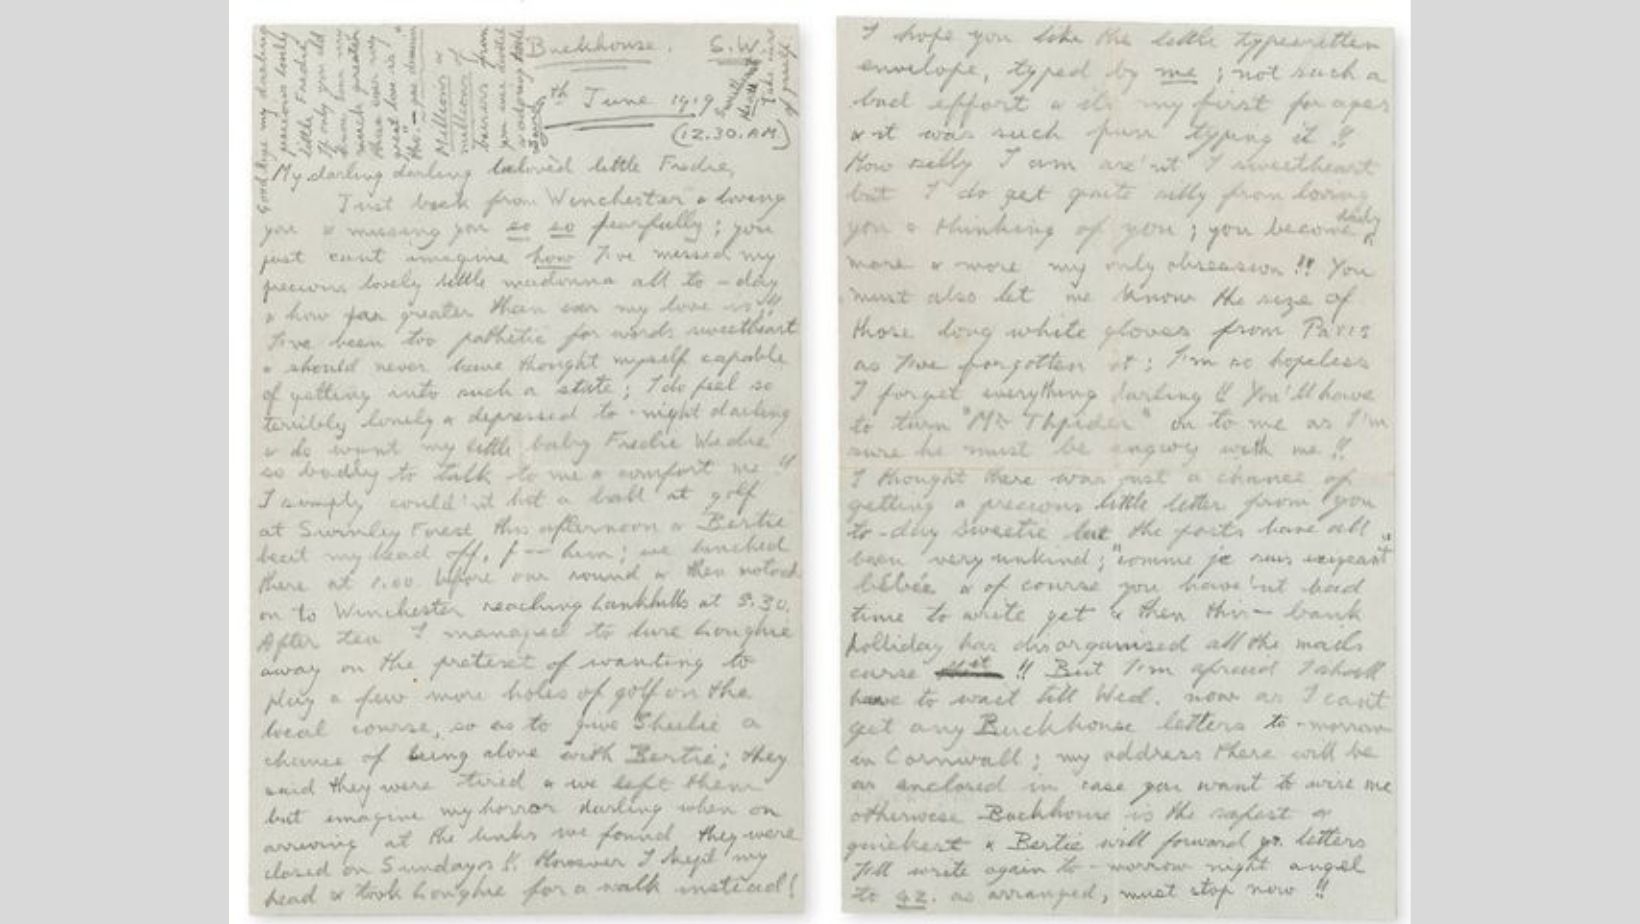 Buckhouse. S.W.
th June 1919
(12.30. A.M)
My darling darling beloved little Fredie,
Just back from Winchester & loving
you & missing you so so fearfully ; you
just cant imagine how I've missed my
precious lovely little madonna all to-day
& how far greater than ever my love is !!
I've been too pathetic for words sweetheart
& should never have thought myself capable
of getting into such a state ; I do feel so
terribly lonely & depressed to-night darling
& do want my little baby Fredie Wedie
so badly to talk to me & comfort me !!
I simply could'nt hit a ball at golf
at Swinley Forest this afternoon & Bertie
beat my head off, f-- him ; we lunched
there at 1.00 before our round & then motored
on to Winchester reaching Lankhills at 5.30.
After tea I managed to lure Loughie
away on the pretext of wanting to
play a few more holes of golf on the
local course, so as to give Sheilie a
chance of being alone with Bertie ; they
said they were tired & we left them
but imagine my horror darling when on
arriving at the links we found they were
closed on Sundays !! However I kept my
head & took Loughie for a walk instead !
Good bye my darling
precious lovely
little Fredie,
If only you did
know how
much greater
than ever my
great love is
Millions &
millions of
baisers from
your devoted
& adoring
Take care
of yourself
I hope you like the little typewritten
envelope, typed by me ; not such a
bad effort & its my first for ages
& it was such fun typing it !!
How silly I am are'nt I sweetheart
but I do get quite silly from loving
you & thinking of you ; you become daily
more & more my only obsession !! You
must also let me know the size of
those long white gloves from Paris
as I've forgotten it ; I'm so hopeless
I forget everything darling !! You'll have
to turn "Mr Thpider" on to me as I'm
sure he must be angwy with me !!
I thought there was just a chance of
getting a precious little letter from you
to-day sweetie but the posts have all
been very unkind ; "comme je suis exigeant"
bébée & of course you have'nt had
time to write yet & then this — bank
holliday has disorganised all the mails
curse it !! But I'm afraid I shall
have to wait till Wed. now as I cant
get any Buckhouse letters to-morrow
in Cornwall ; my address there will be
as enclosed in case you want to wire me
otherwise Buckhouse is the safest &
quickest & Bertie will forward yr. letters
I'll write again to-morrow night angel
to 42. as arranged, must stop now !!